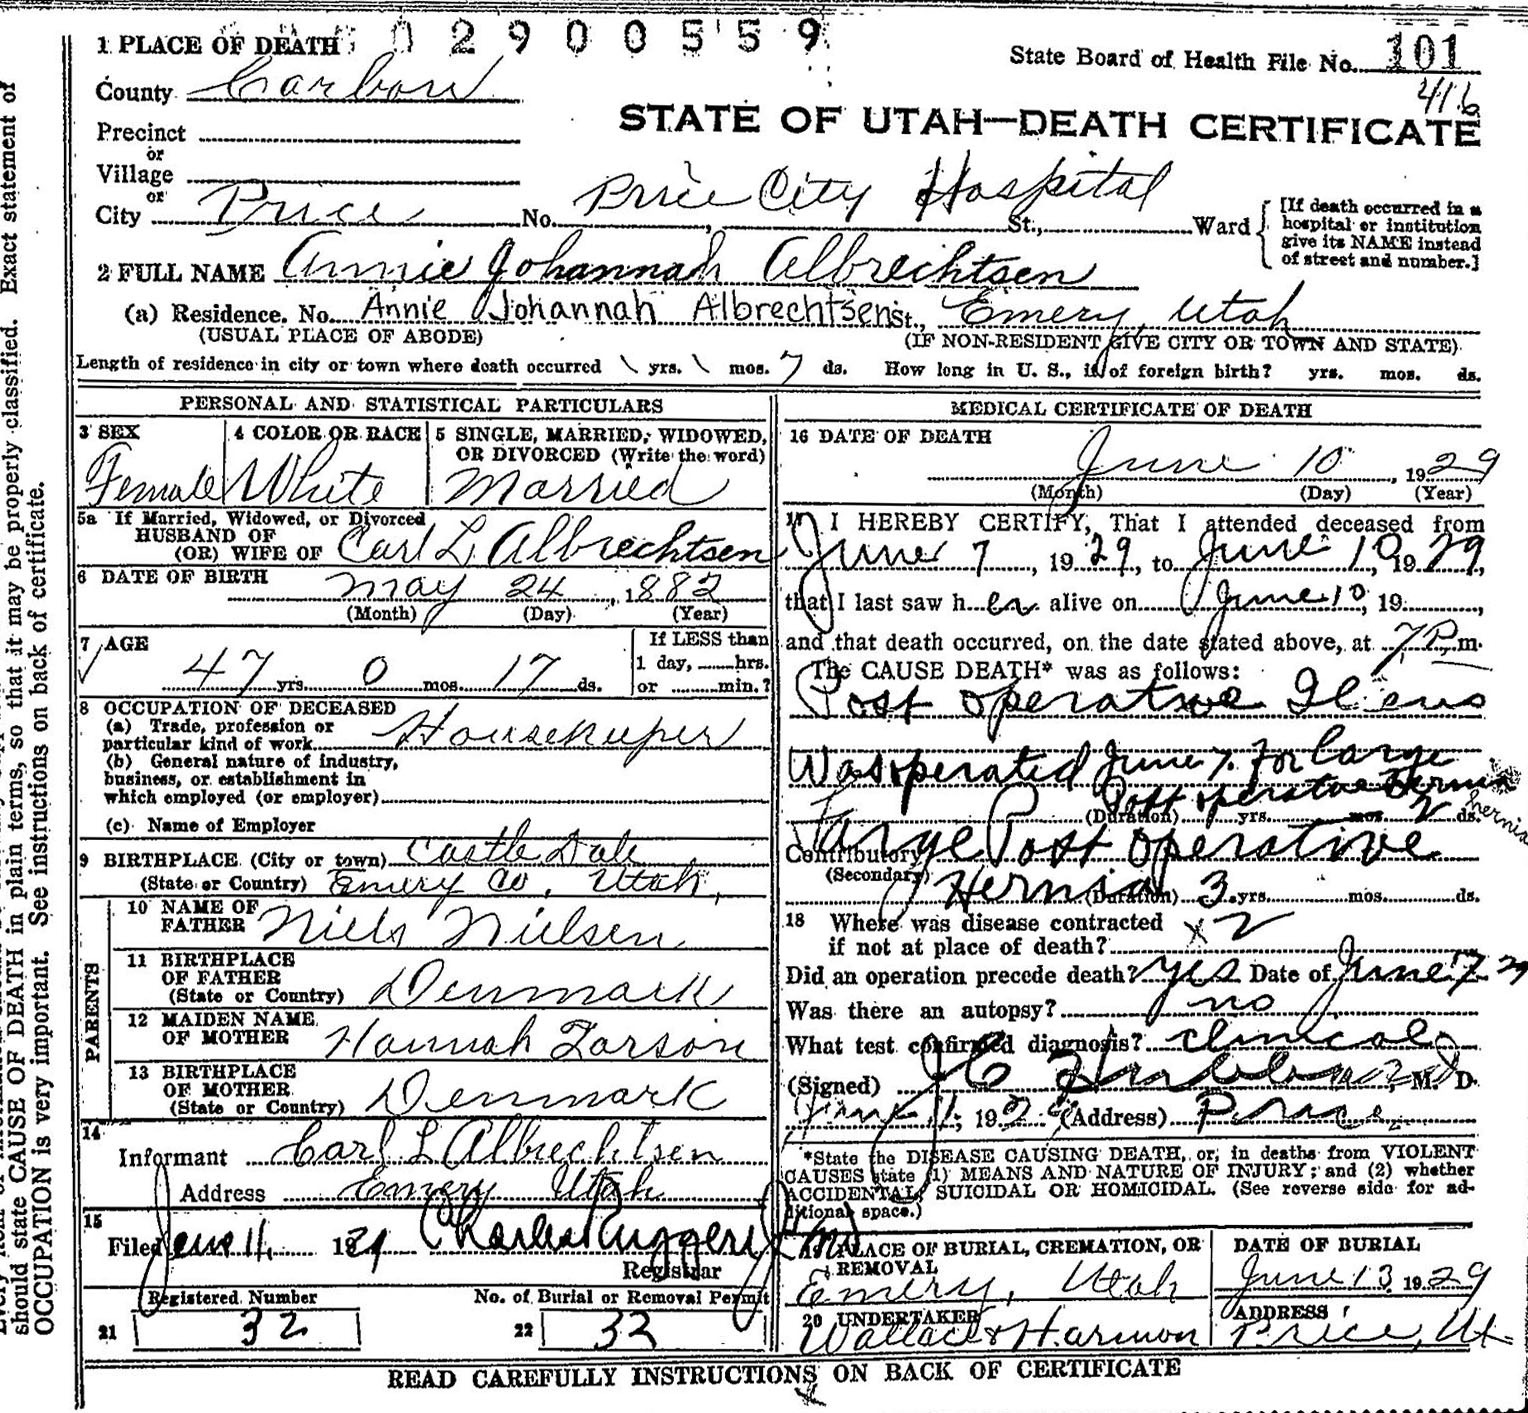 1 PLACE OF DEATH 02900559
State Board of Health File No. 101
416
County Carbon
STATE OF UTAH—DEATH CERTIFICATE
Precinct
or
Village
or
City Price No. Price City Hospital St., Ward
[If death occurred in a
hospital or institution
give its NAME instead
of street and number.]
2 FULL NAME Annie Johannah Albrechtsen
(a) Residence. No. Annie Johannah Albrechtsen St., Emery, Utah
(USUAL PLACE OF ABODE) (IF NON-RESIDENT GIVE CITY OR TOWN AND STATE)
Length of residence in city or town where death occurred \ yrs. \ mos. 7 ds. How long in U. S., if of foreign birth? yrs. mos. ds.
PERSONAL AND STATISTICAL PARTICULARS
3 SEX
Female
4 COLOR OR RACE
White
5 SINGLE, MARRIED, WIDOWED,
OR DIVORCED (Write the word)
Married
5a If Married, Widowed, or Divorced
HUSBAND OF
(OR) WIFE OF Carl L Albrechtsen
6 DATE OF BIRTH May 24, 1882
(Month) (Day) (Year)
7 AGE
47 yrs. 0 mos. 17 ds.
If LESS than
1 day, hrs.
or min.?
8 OCCUPATION OF DECEASED
(a) Trade, profession or
particular kind of work Housekeeper
(b) General nature of industry,
business, or establishment in
which employed (or employer)
(c) Name of Employer
9 BIRTHPLACE (City or town) Castle Dale
(State or Country) Emery Co, Utah,
PARENTS
10 NAME OF
FATHER Niels Nielsen
11 BIRTHPLACE
OF FATHER
(State or Country) Denmark
12 MAIDEN NAME
OF MOTHER Hannah Larson
13 BIRTHPLACE
OF MOTHER
(State or Country) Denmark
14
Informant Carl L Albrechtsen
Address Emery Utah
15
Filed June 11, 1929 Charles Ruggeri
Registrar
Registered Number
21 32
No. of Burial or Removal Permit
22 32
MEDICAL CERTIFICATE OF DEATH
16 DATE OF DEATH
June 10, 1929
(Month) (Day) (Year)
17 I HEREBY CERTIFY, That I attended deceased from
June 7, 1929, to June 10, 1929,
that I last saw her alive on June 10, 19
and that death occurred, on the date stated above, at 7 P.m.
The CAUSE DEATH* was as follows:
Post operative Ileus
Was operated June 7. For large
Post operative Hernia
hernia
(Duration) yrs. mos. 2 ds.
Large Post operative
Contributory
(Secondary)
Hernia (Duration) 3 yrs. mos. ds.
18 Where was disease contracted
if not at place of death?
Did an operation precede death? yes Date of June 7 29
Was there an autopsy? no
What test confirmed diagnosis? clinical
(Signed) J C Hubbard, M. D.
June 11, 1929 (Address) Price.
*State the DISEASE CAUSING DEATH, or, in deaths from VIOLENT
CAUSES state (1) MEANS AND NATURE OF INJURY; and (2) whether
ACCIDENTAL, SUICIDAL OR HOMICIDAL. (See reverse side for ad-
ditional space.)
19 PLACE OF BURIAL, CREMATION, OR
REMOVAL
Emery, Utah
DATE OF BURIAL
June 13 1929
20 UNDERTAKER
Wallace & Harmon
ADDRESS
Price, Ut
READ CAREFULLY INSTRUCTIONS ON BACK OF CERTIFICATE
should state CAUSE OF DEATH in plain terms, so that it may be properly classified. Exact statement of
OCCUPATION is very important. See instructions on back of certificate.